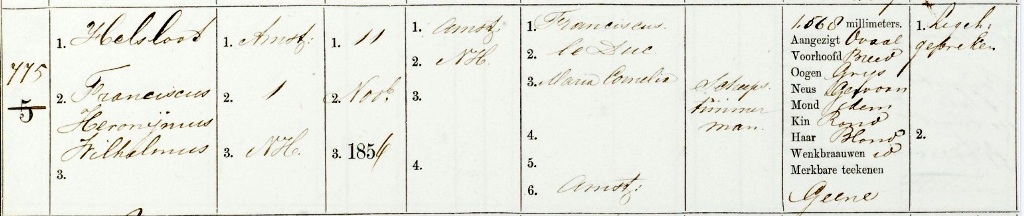 775
5
1. Helsloot
2. Franciscus
Heronijmus
Wilhelmus
3.
1. Amst:
2. 1
3. N.H.
1. 11
2. Novb.
3. 1856
1. Amst:
2. N.H.
3.
4.
1. Franciscus.
2. le Duc
3. Maria Cornelia
4.
5.
6. Amst:
Scheeps
timmer
man.
1.568 millimeters.
Aangezigt Ovaal
Voorhoofd Breed
Oogen Grys
Neus Gewoon
Mond idem
Kin Rond
Haar Blond
Wenkbraauwen id
Merkbare teekenen
Geene
1. Ligch.
gebreken
2.